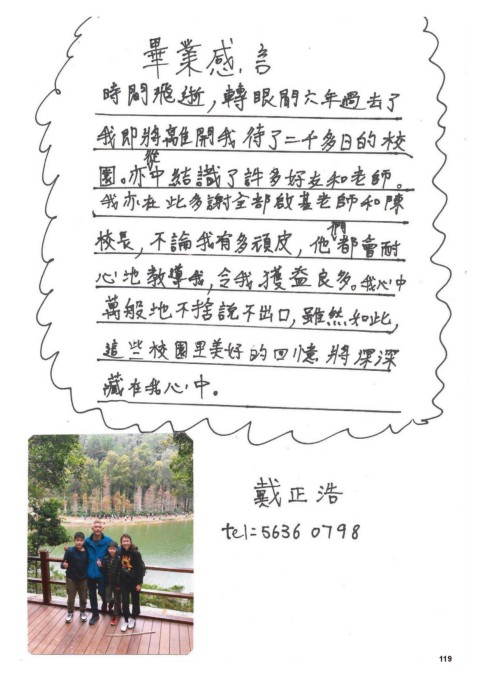 畢業感言
時間飛逝，轉眼間六年過去了
我即將離開我待了二千多日的校
園。亦從中結識了許多好友和老師。
我亦在此多謝全部啟基老師和陳
校長，不論我有多頑皮，他們都會耐
心地教導我，令我獲益良多。我心中
萬般地不捨說不出口，雖然如此，
這些校園里美好的回憶將深深
藏在我心中。
戴正浩
tel：5636 0798
119